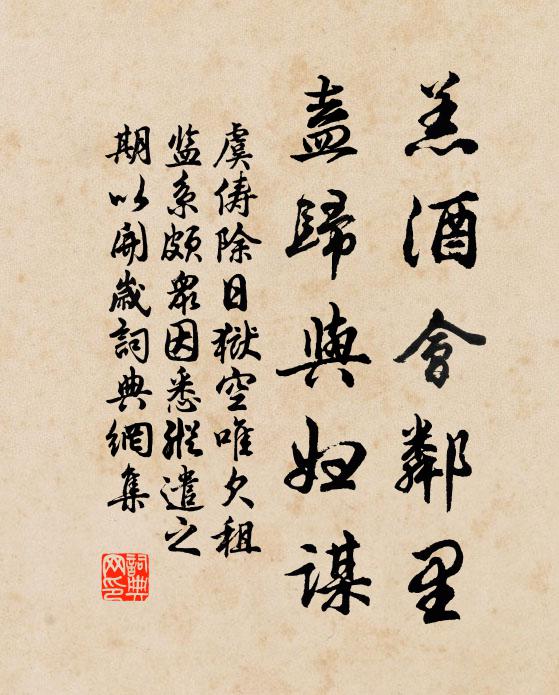 羔酒會鄰里
盍歸與妇謀
虞儔除日獄空唯欠租
监系頗眾因悉縱遣之
期以開歲詞典網集
詞典网印